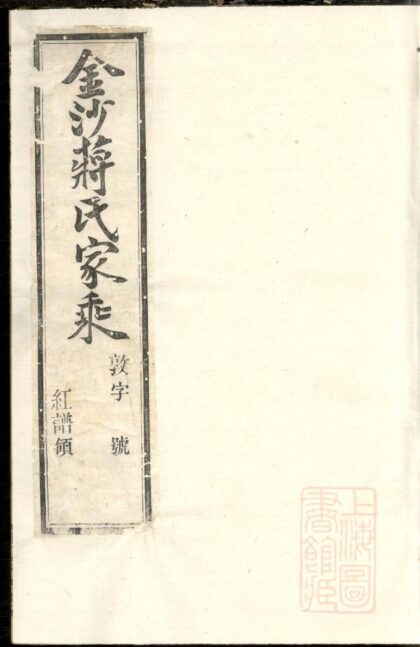 金沙蔣氏家乘
敦字 號
紅譜領
上海圖
書館藏